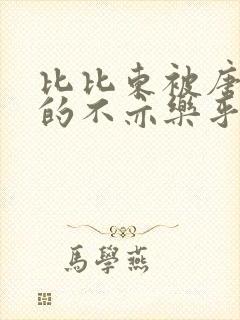 比比东被唐
的不亦樂乎
馬學燕